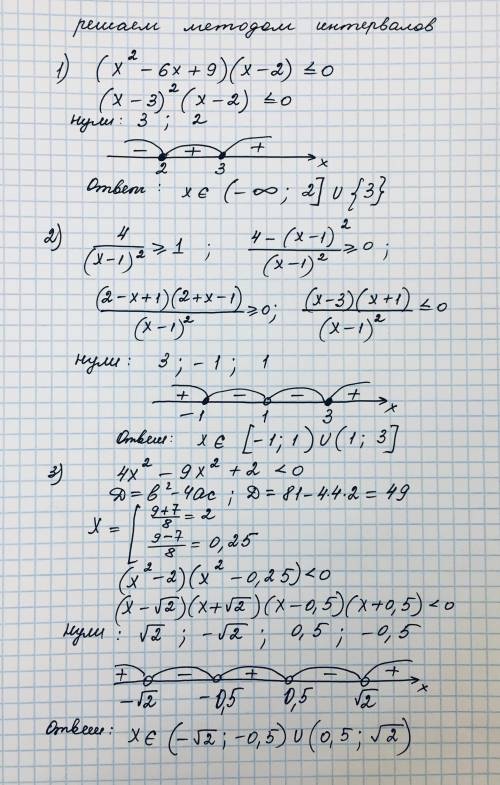 решаем методом интервалов
1) (x² - 6x + 9)(x - 2) ≤ 0
(x - 3)² (x - 2) ≤ 0
нули: 3 ; 2
- + +
2 3 x
Ответ: x ∈ (-∞; 2] ∪ {3}
2) 4/(x-1)² ≥ 1 ; (4-(x-1)²)/(x-1)² ≥ 0 ;
((2-x+1)(2+x-1))/(x-1)² ≥ 0; ((x-3)(x+1))/(x-1)² ≤ 0
нули: 3 ; -1 ; 1
+ - - +
-1 1 3 x
Ответ: x ∈ [-1; 1) ∪ (1; 3]
3) 4x² - 9x² + 2 < 0
Д = в² - 4ac ; Д = 81 - 4·4·2 = 49
X = [ (9+7)/8 = 2
(9-7)/8 = 0,25
(x² - 2)(x² - 0,25) < 0
(x - √2)(x + √2)(x - 0,5)(x + 0,5) < 0
нули: √2 ; -√2 ; 0,5 ; -0,5
+ - + - +
-√2 -0,5 0,5 √2 x
Ответ: x ∈ (-√2; -0,5) ∪ (0,5; √2)